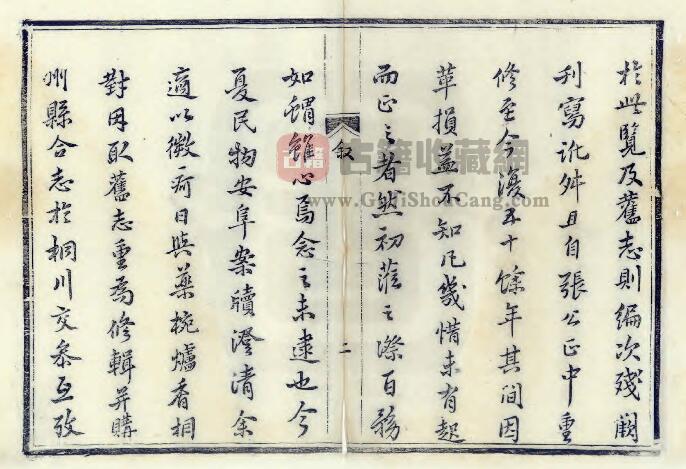 於此覽及舊志則編次殘闕
刊寫訛舛且自張公正中重
修至今復五十餘年其間因
革損益不知凡幾惜未有起
而正之者然初蒞之際百務
如蝟雖心焉念之未逮也今
夏民物安阜案牘澄清余
適以微疴日與藥椀爐香相
對因取舊志重為修輯并購
州縣合志於桐川交參互攷
敘
二
古籍收藏網
www.GujiShouCang.com
古籍